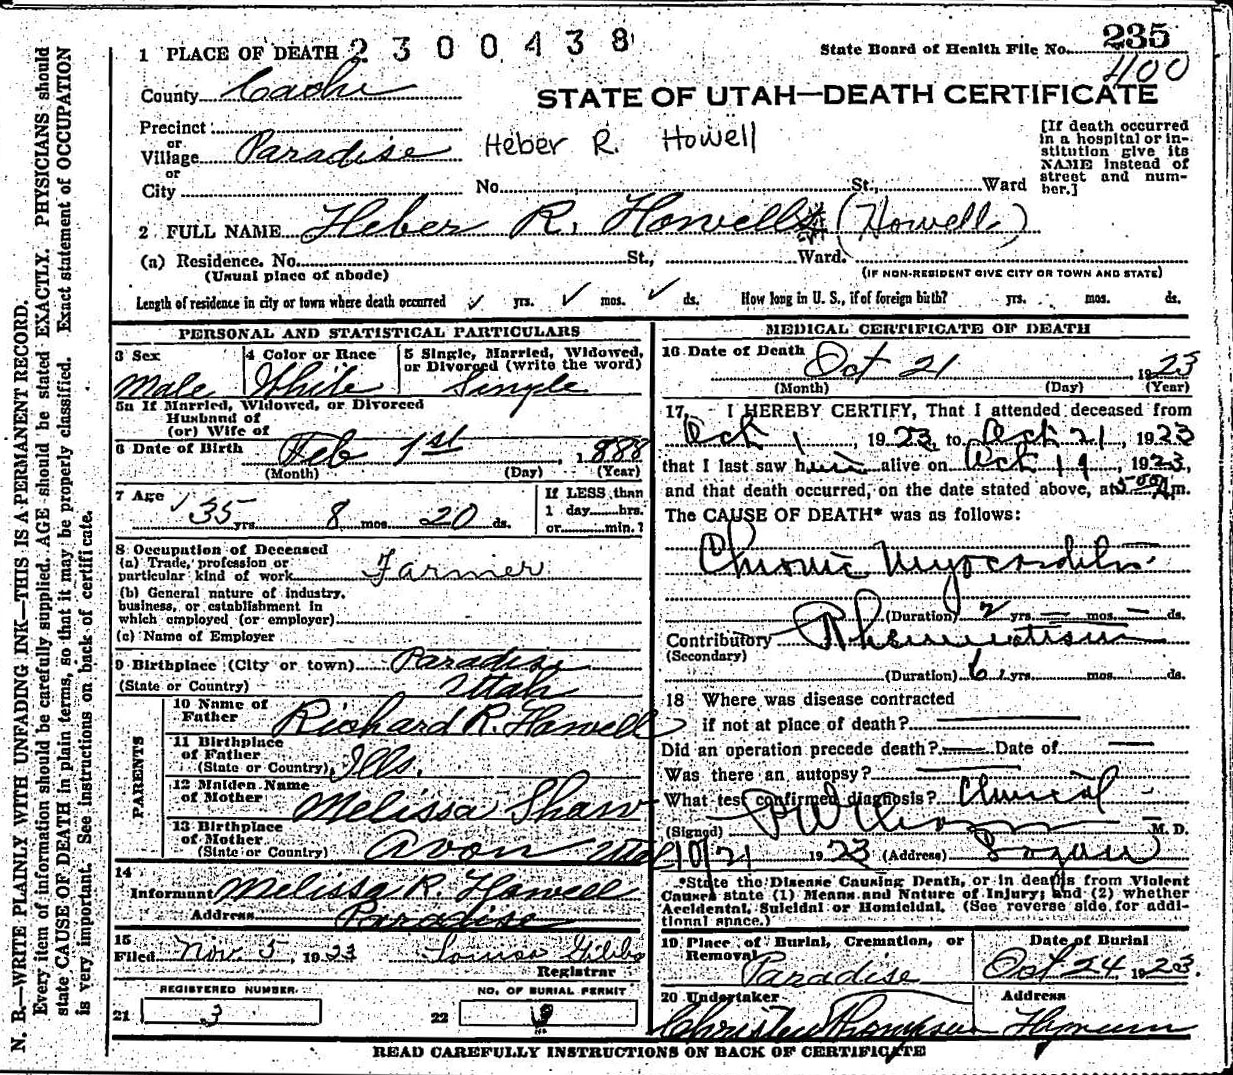 N. B.—WRITE PLAINLY WITH UNFADING INK—THIS IS A PERMANENT RECORD.
Every item of information should be carefully supplied. AGE should be stated EXACTLY. PHYSICIANS should
state CAUSE OF DEATH in plain terms, so that it may be properly classified. Exact statement of OCCUPATION
is very important. See instructions on back of certificate.
1 PLACE OF DEATH 2300438
State Board of Health File No. 235
400
County Cache
STATE OF UTAH—DEATH CERTIFICATE
Precinct
or
Village Paradise
Heber R. Howell
or
City
No. St., Ward
[If death occurred
in a hospital or in-
stitution give its
NAME instead of
street and num-
ber.]
2 FULL NAME Heber R. Howells (Howell)
(a) Residence. No. St., Ward.
(Usual place of abode)
(IF NON-RESIDENT GIVE CITY OR TOWN AND STATE)
Length of residence in city or town where death occurred ✓ yrs. ✓ mos. ✓ ds. How long in U. S., if of foreign birth? yrs. mos. ds.
PERSONAL AND STATISTICAL PARTICULARS
3 Sex
Male
4 Color or Race
White
5 Single, Married, Widowed,
or Divorced (write the word)
Single
5a If Married, Widowed, or Divorced
Husband of
(or) Wife of
6 Date of Birth Feb 1st, 1888
(Month) (Day) (Year)
7 Age
35 yrs. 8 mos. 20 ds.
If LESS than
1 day hrs.
or min.?
8 Occupation of Deceased
(a) Trade, profession or
particular kind of work Farmer
(b) General nature of industry,
business, or establishment in
which employed (or employer)
(c) Name of Employer
9 Birthplace (City or town) Paradise
(State or Country) Utah
PARENTS
10 Name of
Father Richard R. Howell
11 Birthplace
of Father
(State or Country) Ills.
12 Maiden Name
of Mother Melissa Shaw
13 Birthplace
of Mother
(State or Country) Avon Utah
14
Informant Melissa R. Howell
Address Paradise
15
Filed Nov. 5, 1923 Louisa Gibbs
Registrar
REGISTERED NUMBER
21 3
NO. OF BURIAL PERMIT
22
MEDICAL CERTIFICATE OF DEATH
16 Date of Death Oct 21 1923
(Month) (Day) (Year)
17. I HEREBY CERTIFY, That I attended deceased from
Oct 1, 1923, to Oct 21, 1923
that I last saw him alive on Oct 19, 1923,
and that death occurred, on the date stated above, at 5:00 A.m.
The CAUSE OF DEATH* was as follows:
Chronic Myocarditis
(Duration) 2 yrs. — mos. — ds.
Contributory Rheumatism
(Secondary)
(Duration) 6 yrs. mos. ds.
18 Where was disease contracted
if not at place of death?
Did an operation precede death? Date of
Was there an autopsy?
What test confirmed diagnosis? Clinical
(Signed) M. D.
10/21 1923 (Address) Logan
*State the Disease Causing Death, or in deaths from Violent
Causes state (1) Means and Nature of Injury; and (2) whether
Accidental, Suicidal or Homicidal. (See reverse side for addi-
tional space.)
19 Place of Burial, Cremation, or
Removal
Paradise
Date of Burial
Oct 24 1923.
20 Undertaker
Christen Thompson
Address
Hyrum
READ CAREFULLY INSTRUCTIONS ON BACK OF CERTIFICATE